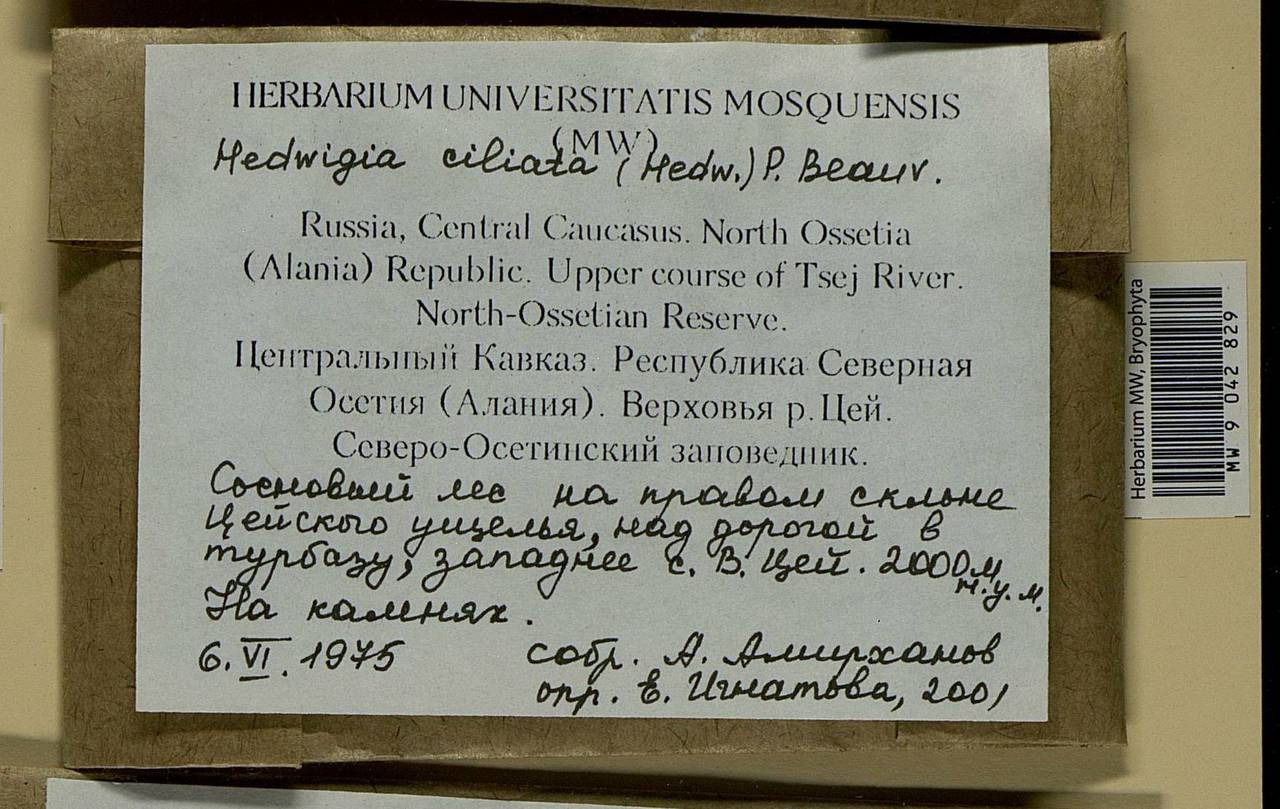 HERBARIUM UNIVERSITATIS MOSQUENSIS
(MW)
Hedwigia ciliata (Hedw.) P. Beauv.
Russia, Central Caucasus. North Ossetia
(Alania) Republic. Upper course of Tsej River.
North-Ossetian Reserve.
Центральный Кавказ. Республика Северная
Осетия (Алания). Верховья р. Цей.
Северо-Осетинский заповедник.
Сосновый лес на правом склоне
Цейского ущелья, над дорогой в
турбазу, западнее с. В. Цей. 2000 м
н.у.м.
На камнях.
6. VI. 1975 собр. А. Амирханов
опр. Е. Игнатова, 2001
Herbarium MW, Bryophyta
MW 9 042 829